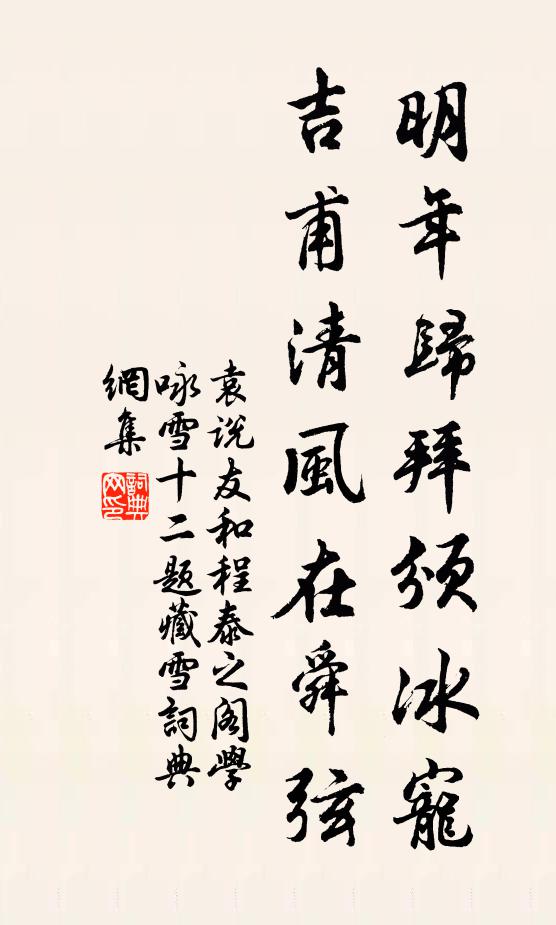 明年歸拜頒冰寵
吉甫清風在舜弦
袁說友和程泰之閣學
咏雪十二題藏雪詞典
網集
詞典網印